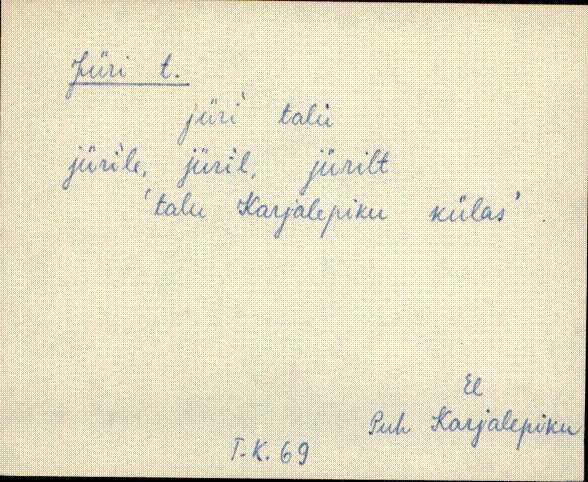 Jüri t.
jüri` talu
jürile, jüril, jürilt
'talu Karjalepiku külas'
El
Puh Karjalepiku
T.K. 69